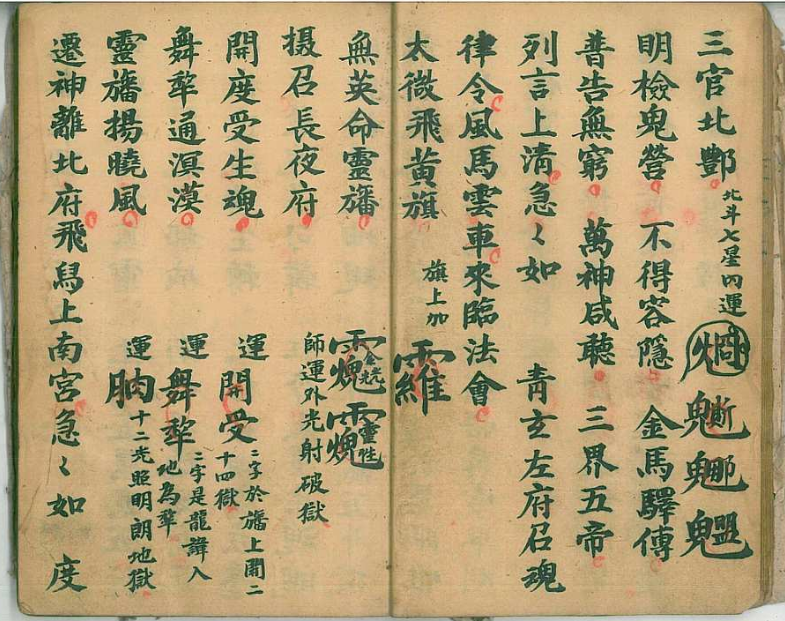 三官北酆 北斗七星內運
明檢鬼營 不得容隱 金馬驛傳
普告無窮 萬神咸聽 三界五帝
列言上清急〻如 青玄左府召魂
律令風馬雲車來臨法會
太微飛黃旗 旗上加
無英命靈旛
摄召長夜府 師運外光射破獄
開度受生魂 運開受 二字於旛上開二十四獄
舞犂通溟漠 運舞犂 二字是龍諱入地為犂
靈旛揚曉風 運 十二光照明朗地獄
遷神離北府飛舄上南宮急〻如 度